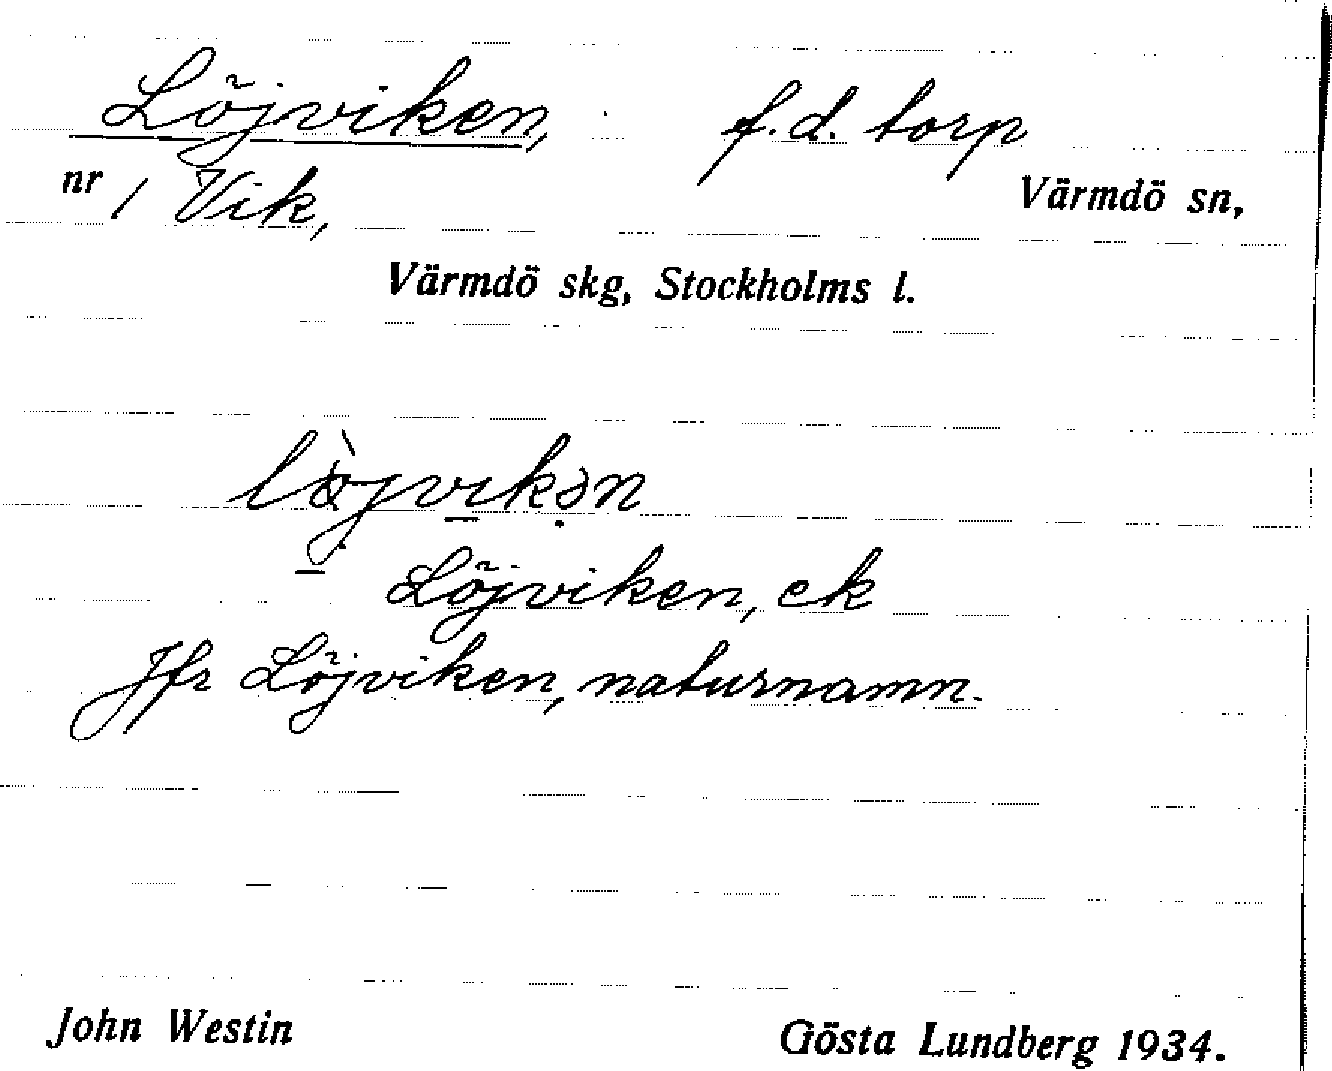 Löjviken, f.d. torp
nr 1 Vik, Värmdö sn,
Värmdö skg, Stockholms l.
Löjviken, ek
Jfr Löjviken, naturnamn.
John Westin Gösta Lundberg 1934.